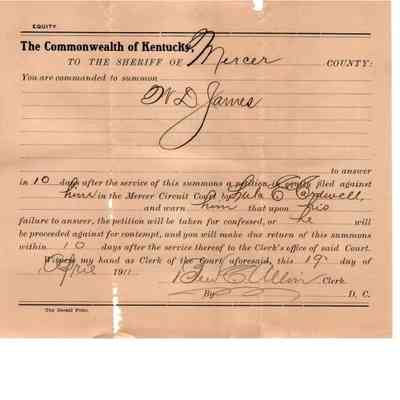 EQUITY
The Commonwealth of Kentucky,
TO THE SHERIFF OF Mercer COUNTY:
You are commanded to summon
W D James
to answer
in 10 days after the service of this summons a petition in equity filed against
him in the Mercer Circuit Court by Lula C Cordwell,
and warn him that upon his
failure to answer, the petition will be taken for confessed, or he will
be proceeded against for contempt, and you will make due return of this summons
within 10 days after the service thereof to the Clerk's office of said Court.
Witness my hand as Clerk of the Court aforesaid, this 19 day of
April 191
Ben C Allin Clerk
By D. C.